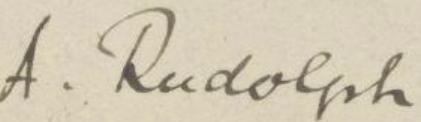 A. Rudolph